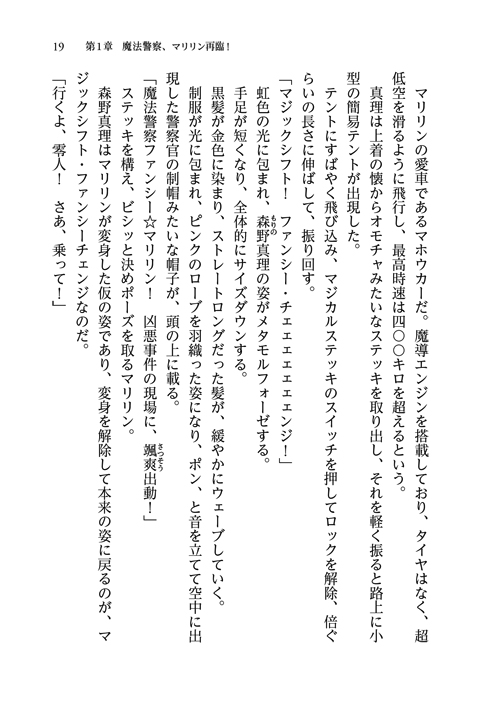 19　第1章　魔法警察、マリリン再臨！
　マリリンの愛車であるマホウカーだ。魔導エンジンを搭載しており、タイヤはなく、超
低空を滑るように飛行し、最高時速は四〇〇キロを超えるという。
　真理は上着の懐からオモチャみたいなステッキを取り出し、それを軽く振ると路上に小
型の簡易テントが出現した。
　テントにすばやく飛び込み、マジカルステッキのスイッチを押してロックを解除、倍ぐ
らいの長さに伸ばして、振り回す。
「マジックシフト！　ファンシー・チェェェェェェンジ！」
　虹色の光に包まれ、森野真理の姿がメタモルフォーゼする。
もりの
　手足が短くなり、全体的にサイズダウンする。
　黒髪が金色に染まり、ストレートロングだった髪が、緩やかにウェーブしていく。
　制服が光に包まれ、ピンクのローブを羽織った姿になり、ポン、と音を立てて空中に出
現した警察官の制帽みたいな帽子が、頭の上に載る。
「魔法警察ファンシー☆マリリン！　凶悪事件の現場に、颯爽出動！」
さっそう
　ステッキを構え、ビシッと決めポーズを取るマリリン。
　森野真理はマリリンが変身した仮の姿であり、変身を解除して本来の姿に戻るのが、マ
ジックシフト・ファンシーチェンジなのだ。
「行くよ、零人！　さあ、乗って！」